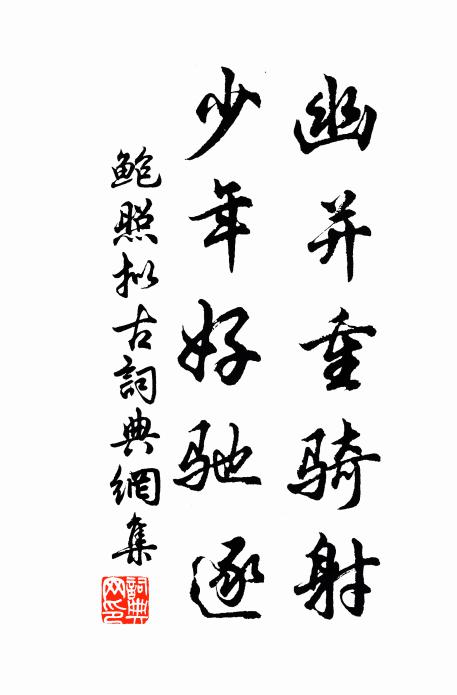 幽并重骑射
少年好驰逐
鲍照拟古詞典網集
詞典網印